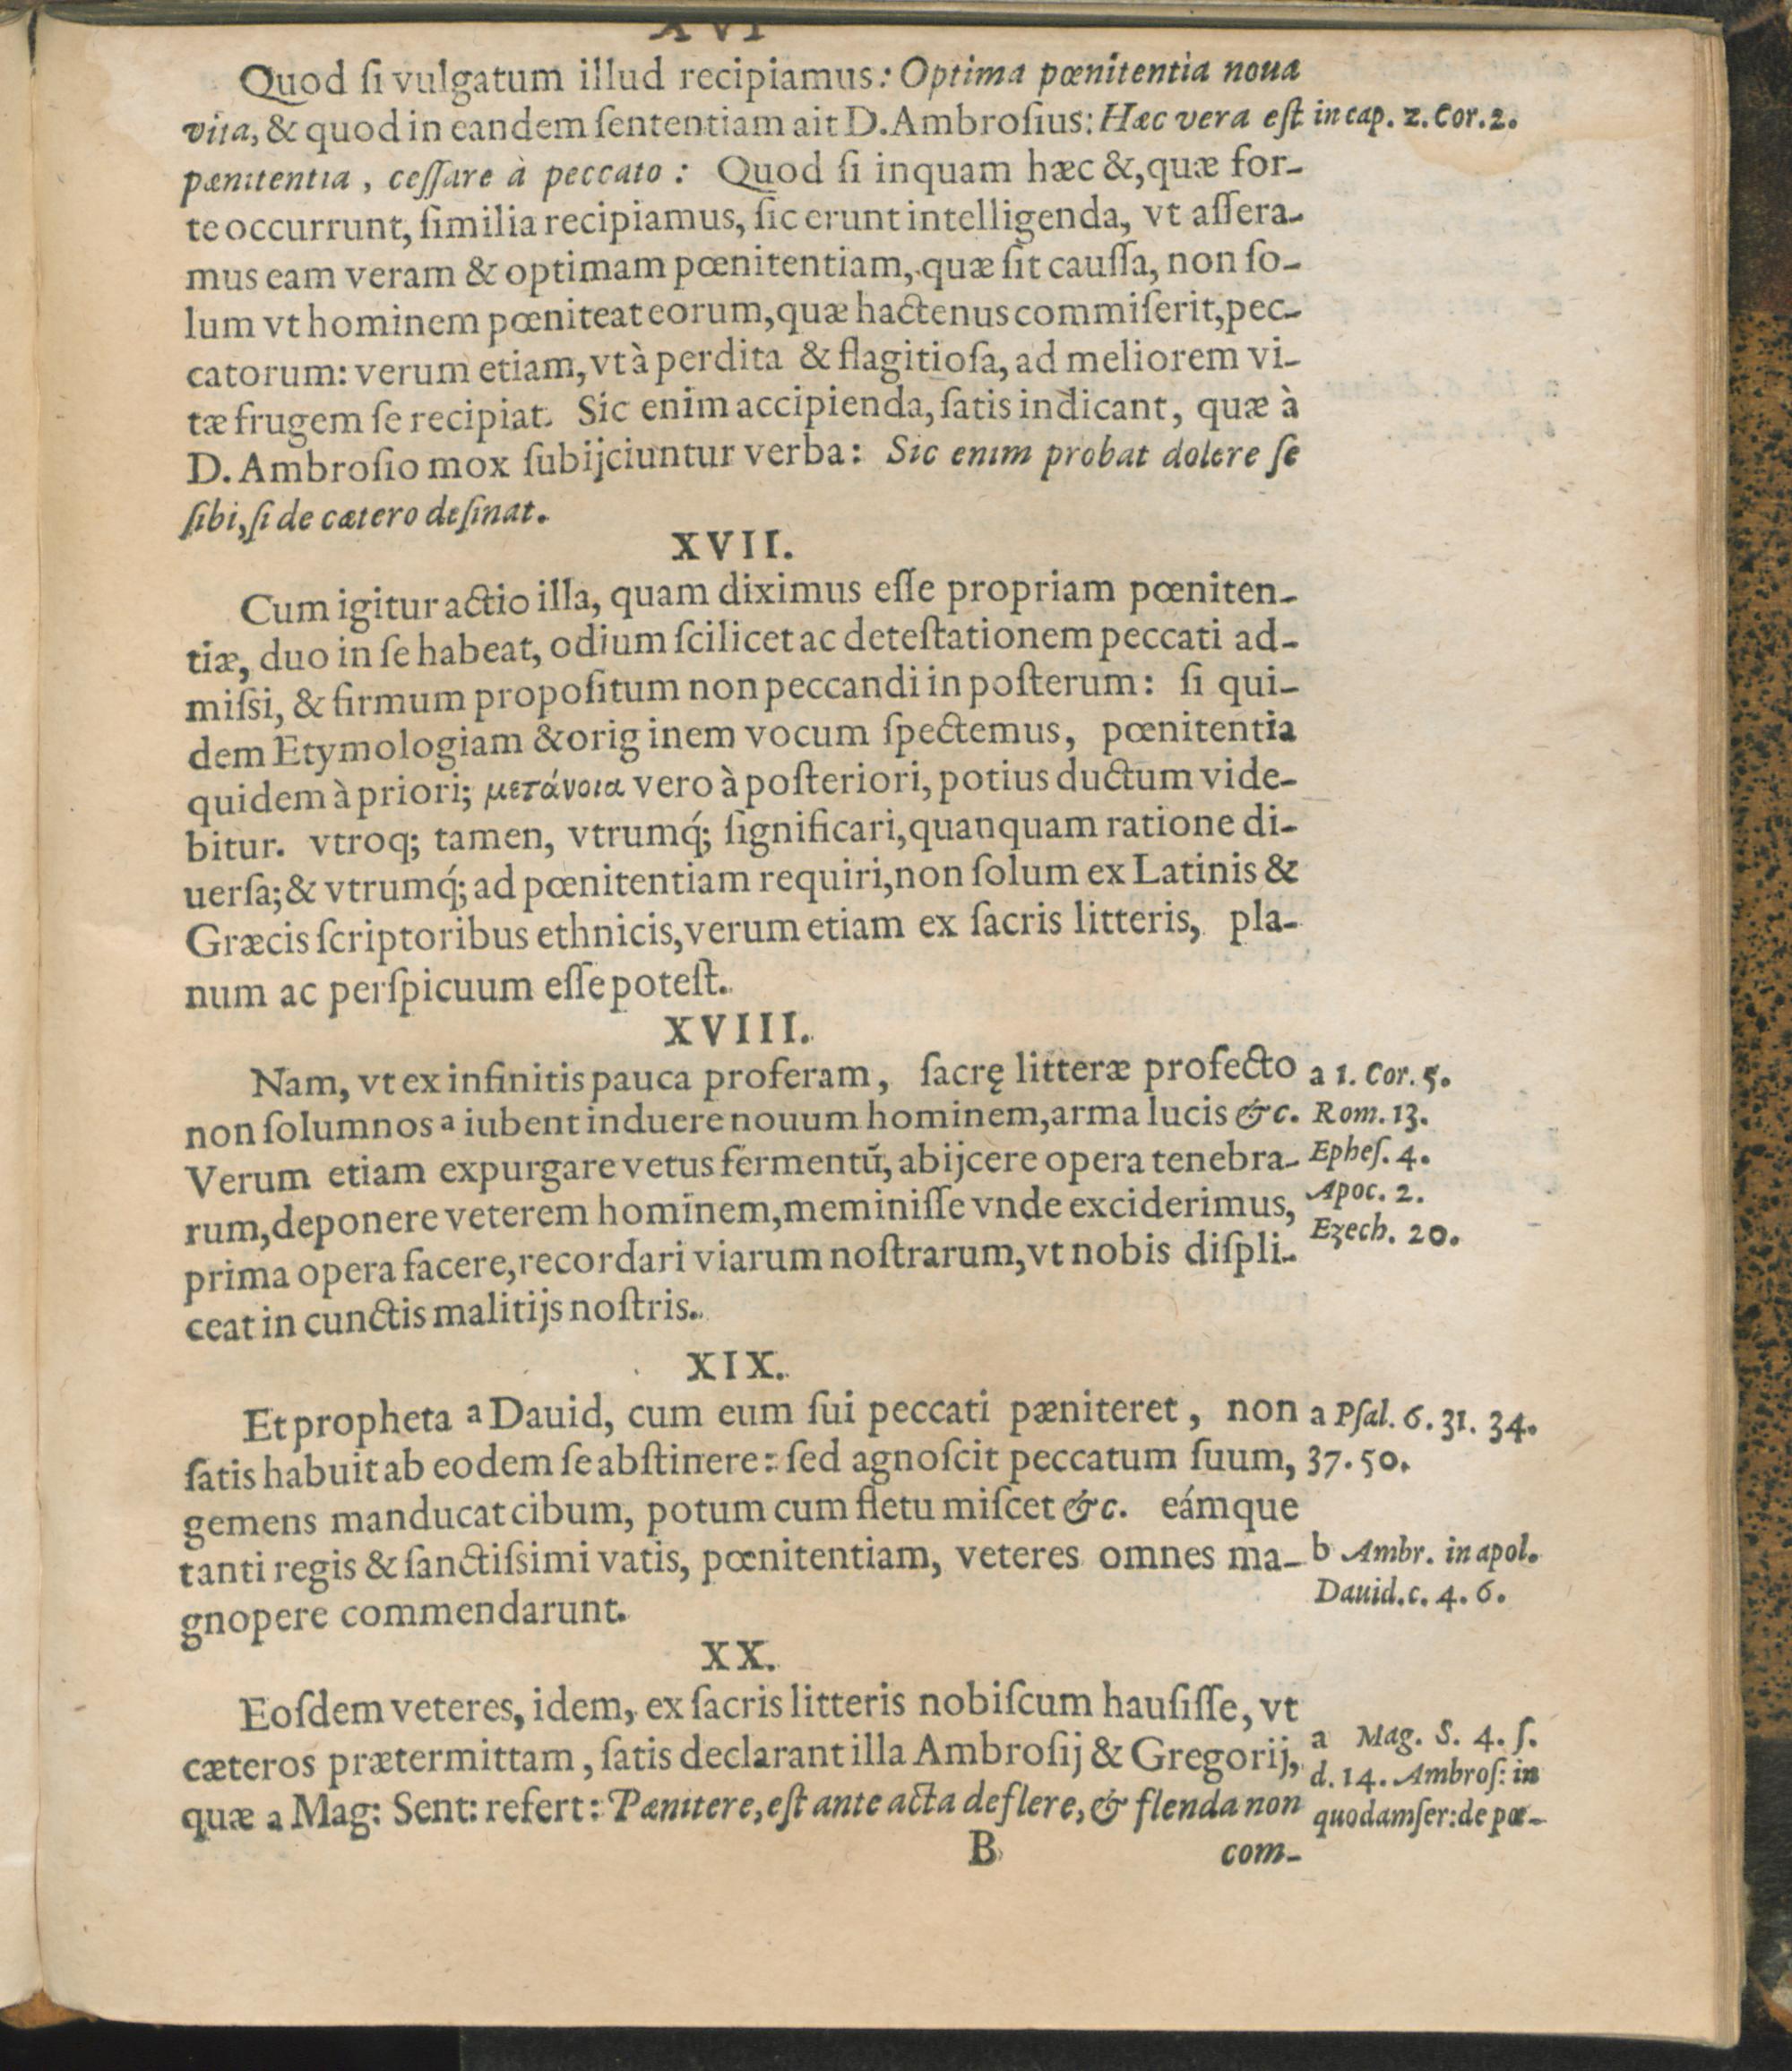 XVI
Quod ſi vulgatum illud recipiamus: Optima pœnitentia noua
vita, & quod in eandem ſententiam ait D. Ambroſius: Hæc vera eſt in cap. 2. Cor. 2.
pænitentia, ceſſare à peccato: Quod ſi inquam hæc &, quæ for-
te occurrunt, ſimilia recipiamus, ſic erunt intelligenda, vt aſſera-
mus eam veram & optimam pœnitentiam, quæ ſit cauſſa, non ſo-
lum vt hominem pœniteat eorum, quæ hactenus commiſerit, pec-
catorum: verum etiam, vt à perdita & flagitioſa, ad meliorem vi-
tæ frugem ſe recipiat. Sic enim accipienda, ſatis indicant, quæ à
D. Ambroſio mox ſubijciuntur verba: Sic enim probat dolere ſe
ſibi, ſi de cætero deſinat.
XVII.
Cum igitur actio illa, quam diximus eſſe propriam pœniten-
tiæ, duo in ſe habeat, odium ſcilicet ac deteſtationem peccati ad-
miſsi, & firmum propoſitum non peccandi in poſterum: ſi qui-
dem Etymologiam & orig inem vocum ſpectemus, pœnitentia
quidem à priori; μετάνοια vero à poſteriori, potius ductum vide-
bitur. vtroq; tamen, vtrumq́; ſignificari, quanquam ratione di-
uerſa; & vtrumq́; ad pœnitentiam requiri, non ſolum ex Latinis &
Græcis ſcriptoribus ethnicis, verum etiam ex ſacris litteris, pla-
num ac perſpicuum eſſe poteſt.
XVIII.
Nam, vt ex infinitis pauca proferam, ſacrę litteræ profecto a 1. Cor. 5.
non ſolum nos a iubent induere nouum hominem, arma lucis &c. Rom. 13.
Verum etiam expurgare vetus fermentū, abijcere opera tenebra- Epheſ. 4.
rum, deponere veterem hominem, meminiſſe vnde exciderimus, Apoc. 2.
prima opera facere, recordari viarum noſtrarum, vt nobis diſpli- Ezech. 20.
ceat in cunctis malitijs noſtris.
XIX.
Et propheta a Dauid, cum eum ſui peccati pæniteret, non a Pſal. 6. 31. 34.
ſatis habuit ab eodem ſe abſtinere: ſed agnoſcit peccatum ſuum, 37. 50.
gemens manducat cibum, potum cum fletu miſcet &c. eámque
tanti regis & ſanctiſsimi vatis, pœnitentiam, veteres omnes ma- b Ambr. in apol.
gnopere commendarunt. Dauid. c. 4. 6.
XX.
Eoſdem veteres, idem, ex ſacris litteris nobiſcum hauſiſſe, vt
cæteros prætermittam, ſatis declarant illa Ambroſij & Gregorij, a Mag. S. 4. ſ.
d. 14. Ambroſ: in
quæ a Mag: Sent: refert: Pænitere, eſt ante acta deflere, & flenda non quodam ſer: de pœ-
B com-